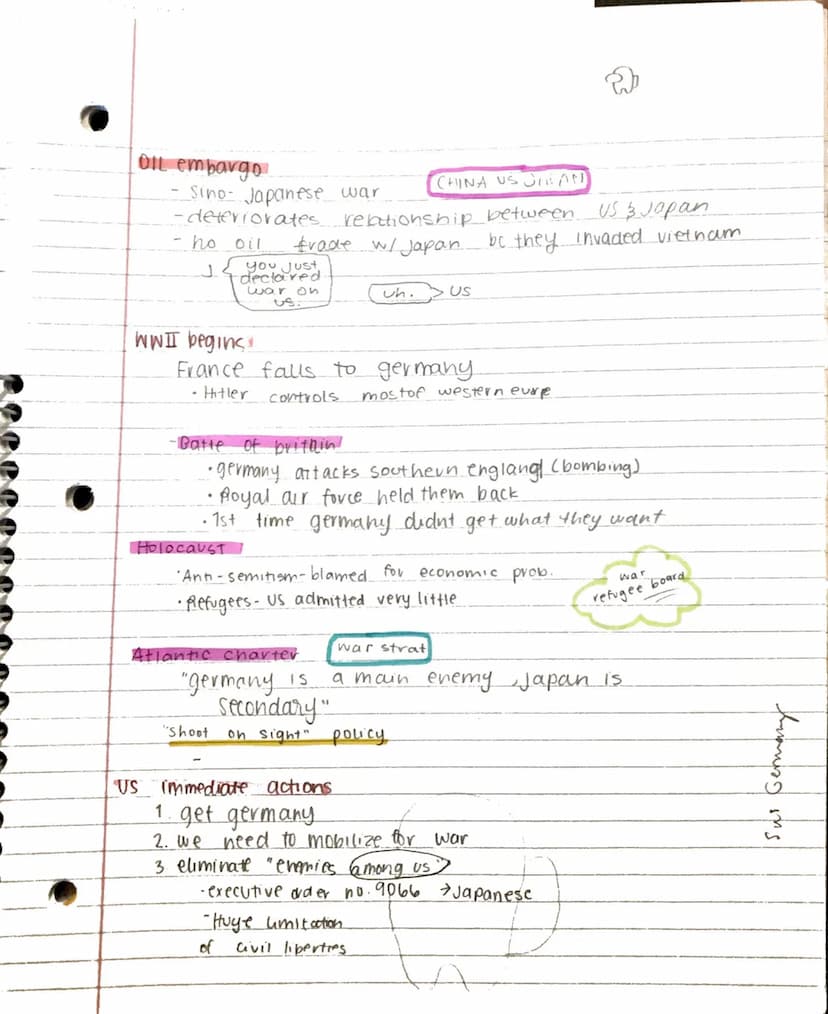 OIL embargo
- Sino-Japanese war
CHINA VS JAPAN
- deteriorates relationship between US & Japan
- no oil trade w/ Japan bc they invaded vietnam
J
you just
declared
war on
us.
uh.
US
WWII begins
France falls to germany
• Hitler controls most of western euro
- Battle of britain
• germany attacks southern england (bombing)
• Royal air force held them back
• 1st time germany didnt get what they want
Holocaust
• Anti-semitism-blamed for economic prob.
war
refugee board
• Refugees- US admitted very little
Atlantic charter
war strat
"germany is a main enemy, Japan is
secondary"
"shoot on sight" policy
-
US immediate actions
1. get germany
2. we need to mobilize for war
3 eliminate "enemies among us"
• executive order no. 9066 → Japanese
- Huge limitation
of civil liberties
Germany